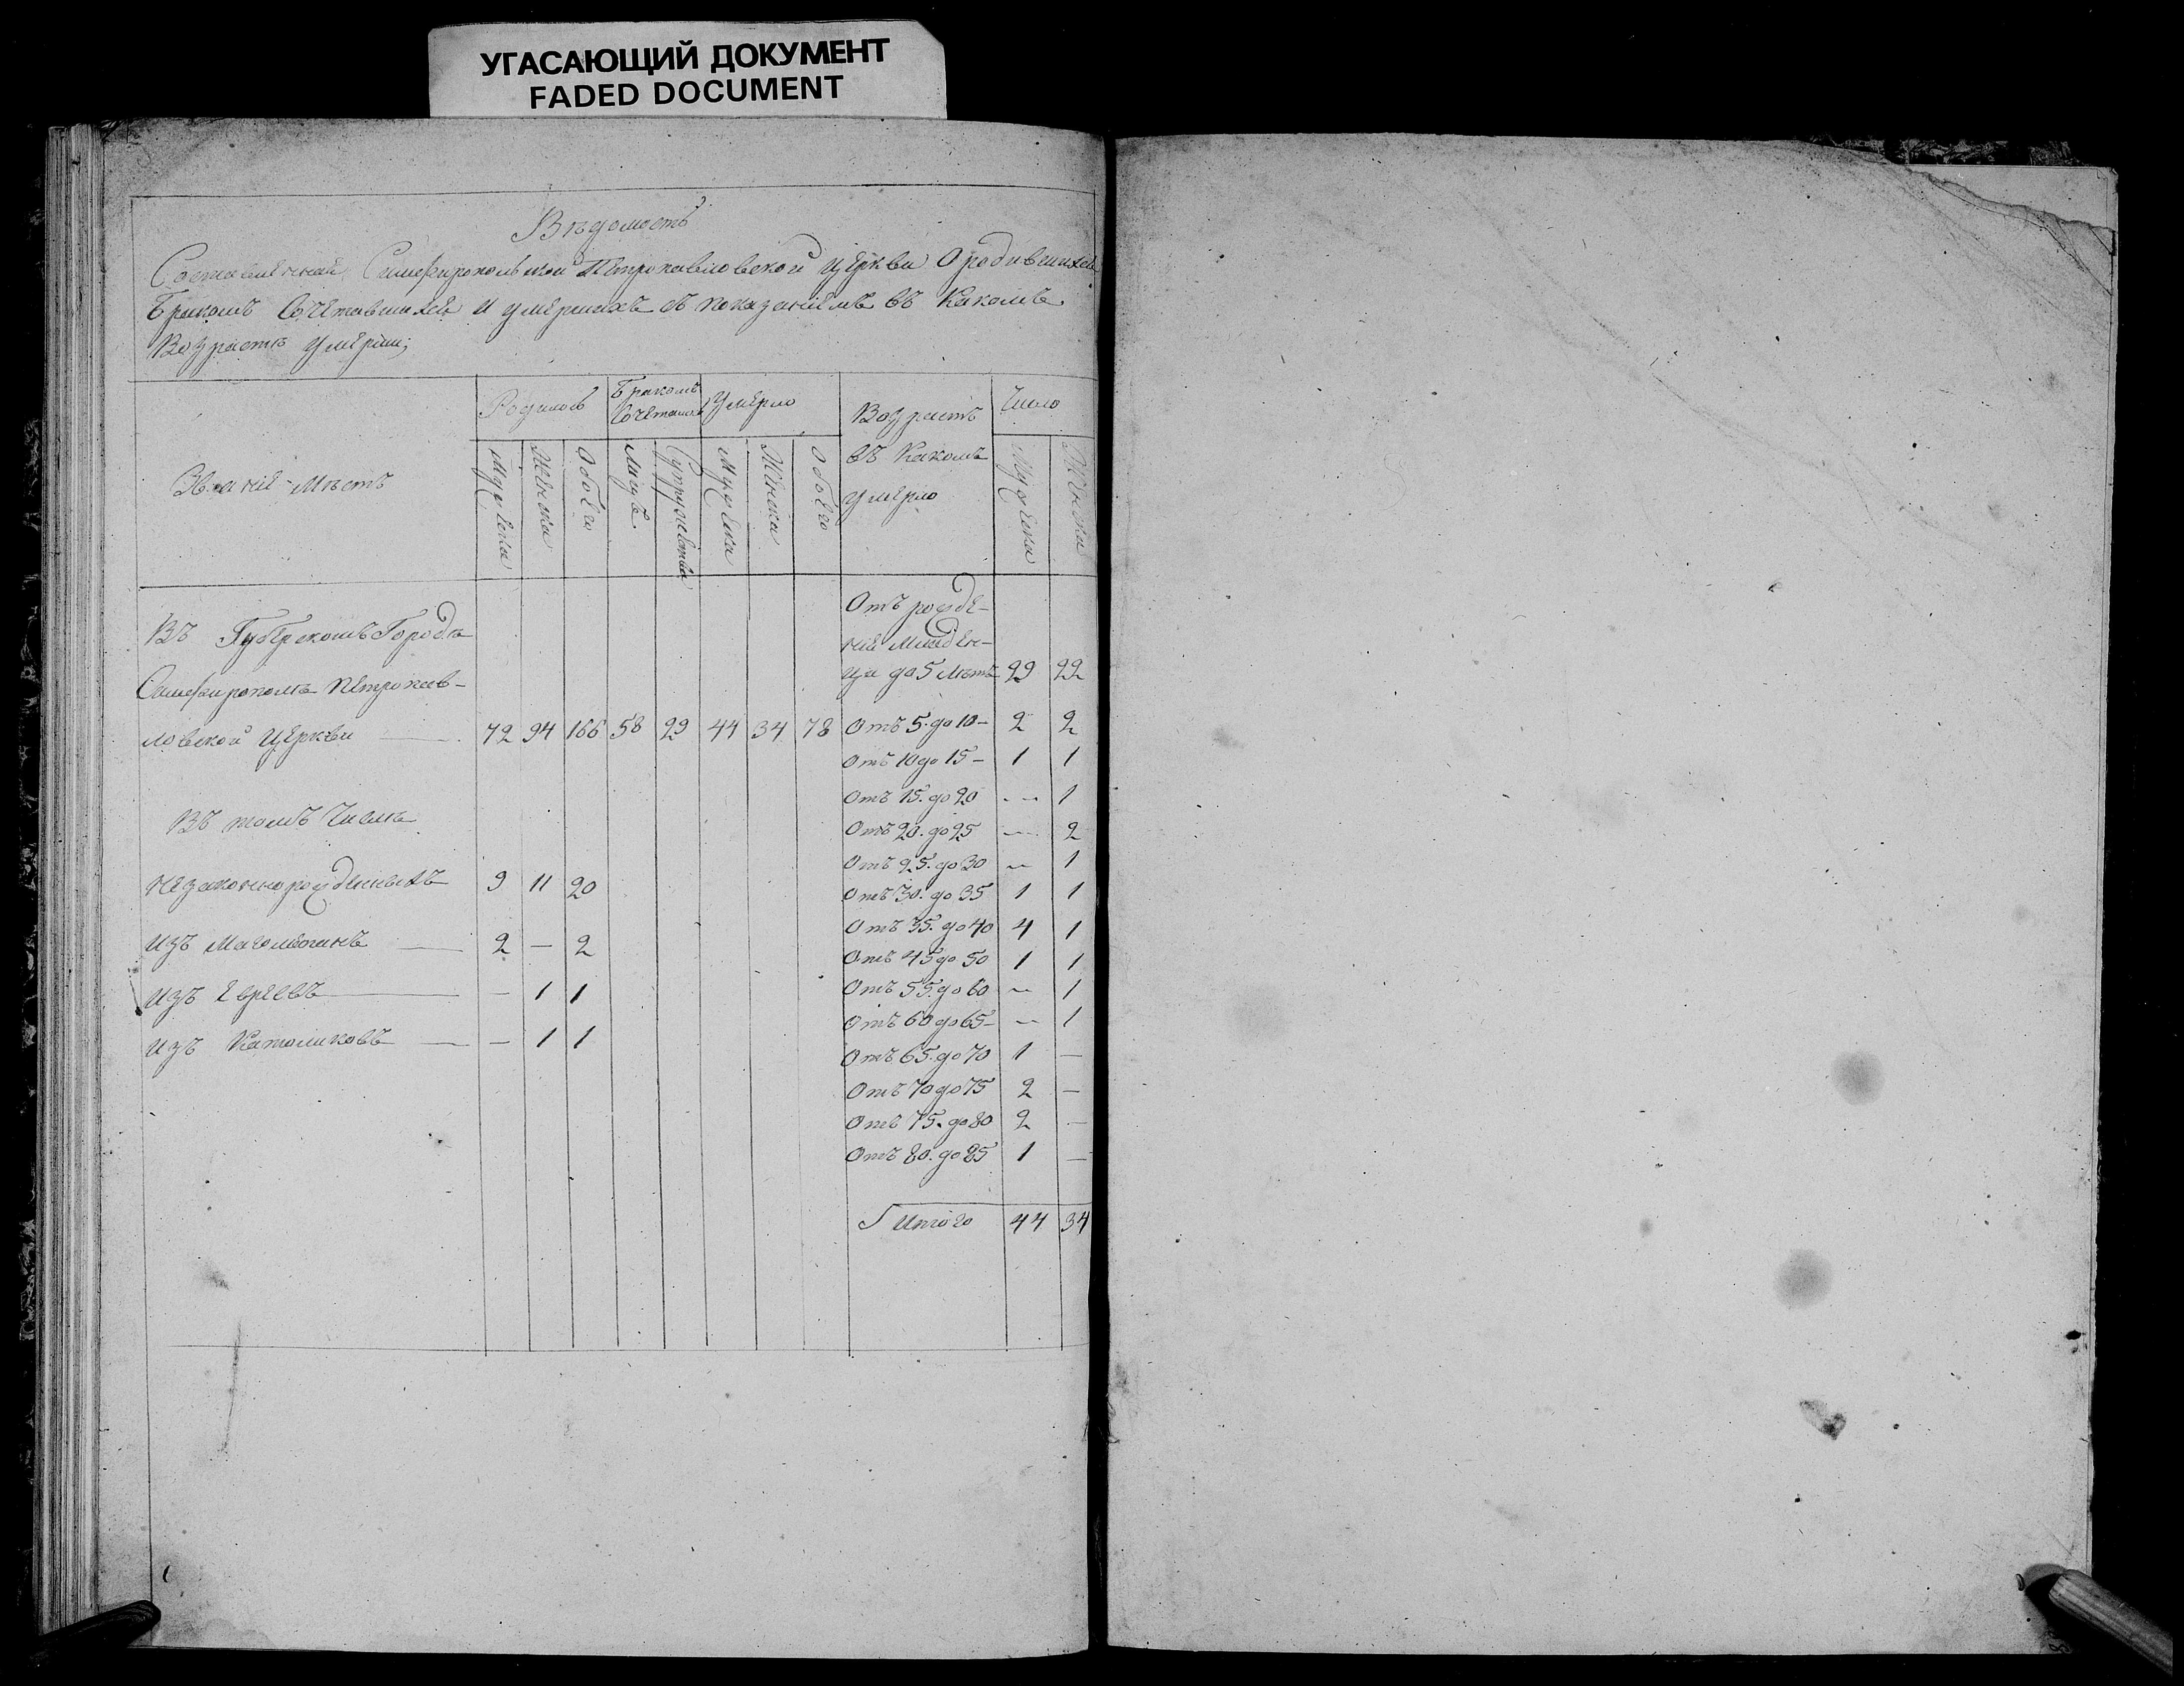 УГАСАЮЩИЙ ДОКУМЕНТ
FADED DOCUMENT
Вѣдомость
Составленная Симферопольской Петропавловской Церкви О родившихся
Бракомъ Сочетавшихся и умершихъ съ показаніемъ въ Какомъ
Возрастѣ умерли;
Званіе Мѣстъ
Родилось
Бракомъ Сочеталось
Умерло
Возрастъ въ Какомъ умерло
Число
Мужеска
Женска
Обоего
Лицъ
Супружества
Мужеска
Женска
Обоего
Мужеска
Женска
Въ Губернскомъ Городѣ
Симферополѣ Петропав-
ловской Церкви 72 94 166 58 29 44 34 78
Въ томъ Числѣ
незаконнорожденныхъ 9 11 20
изъ Магометанъ — 2 — 2
изъ Евреевъ — — 1 1
изъ Католиковъ — — 1 1
Отъ рожде-
нія Младен-
ца до 5 лѣтъ 29 22
Отъ 5. до 10 – 2 2
Отъ 10 до 15 – 1 1
Отъ 15. до 20 — 1
Отъ 20. до 25 — 2
Отъ 25. до 30 — 1
Отъ 30. до 35 1 1
Отъ 35. до 40 4 1
Отъ 45 до 50 1 1
Отъ 55. до 60 — 1
Отъ 60 до 65 – — 1
Отъ 65. до 70 1 —
Отъ 70 до 75 2 —
Отъ 75. до 80 2 —
Отъ 80. до 85 1 —
Итого 44 34